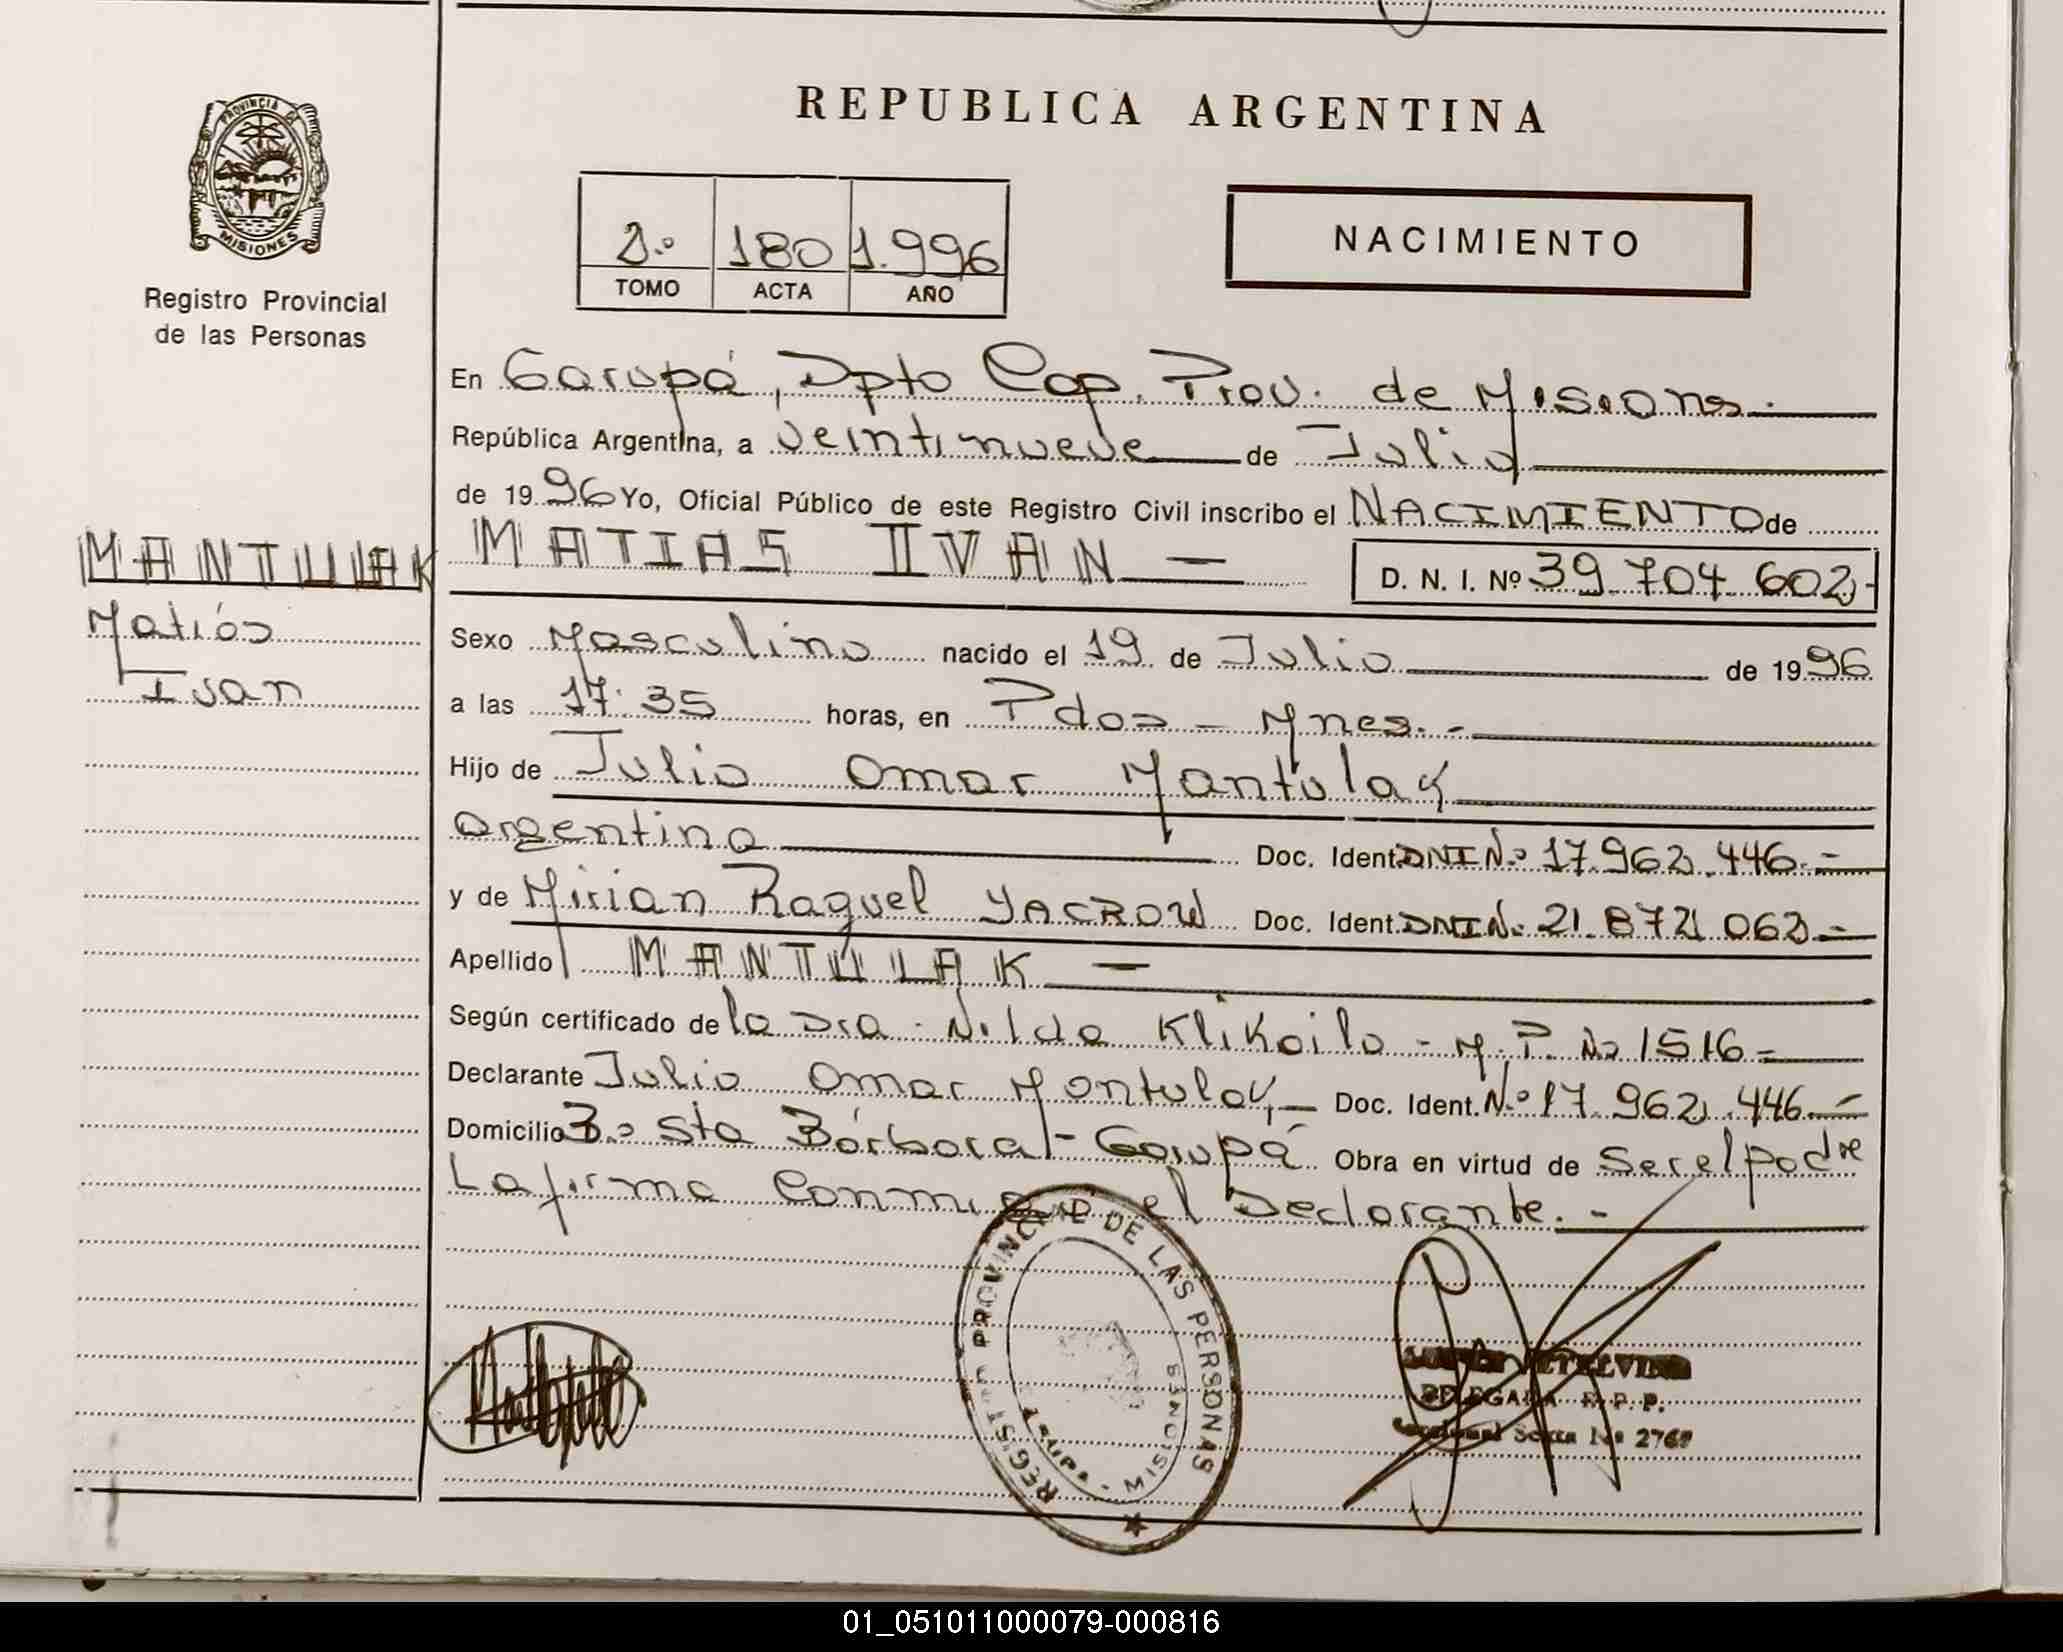 REPUBLICA ARGENTINA
PROVINCIA DE
MISIONES
Registro Provincial
de las Personas
NACIMIENTO
2.º 180 1.996
TOMO ACTA AÑO
En Garupá, Dpto Cap. Prov. de Misiones.
República Argentina, a veintinueve de Julio
de 1996 Yo, Oficial Público de este Registro Civil inscribo el NACIMIENTO de
MANTULAK
Matías
Ivan
MATIAS IVAN —
D. N. I. Nº 39.704.602-
Sexo Masculino nacido el 19 de Julio de 1996
a las 17:35 horas, en Pdas - Mnes.-
Hijo de Julio Omar Mantulak
argentina Doc. Ident. DNI N.º 17.962.446.-
y de Mirian Raquel YACROW Doc. Ident. DNI Nº 21.872.062.-
Apellido MANTULAK —
Según certificado de la Dra. Nilda Klikailo - M.P. Nº 1516-
Declarante Julio Omar Mantulak, — Doc. Ident. N.º 17.962.446.-
Domicilio Bº Sta Bárbara - Garupá Obra en virtud de Ser el padre
La firma Conmigo el Declarante.-
REGISTRO PROVINCIAL DE LAS PERSONAS
GARUPA - MISIONES
DELEGADA R. P. P.
01_051011000079-000816